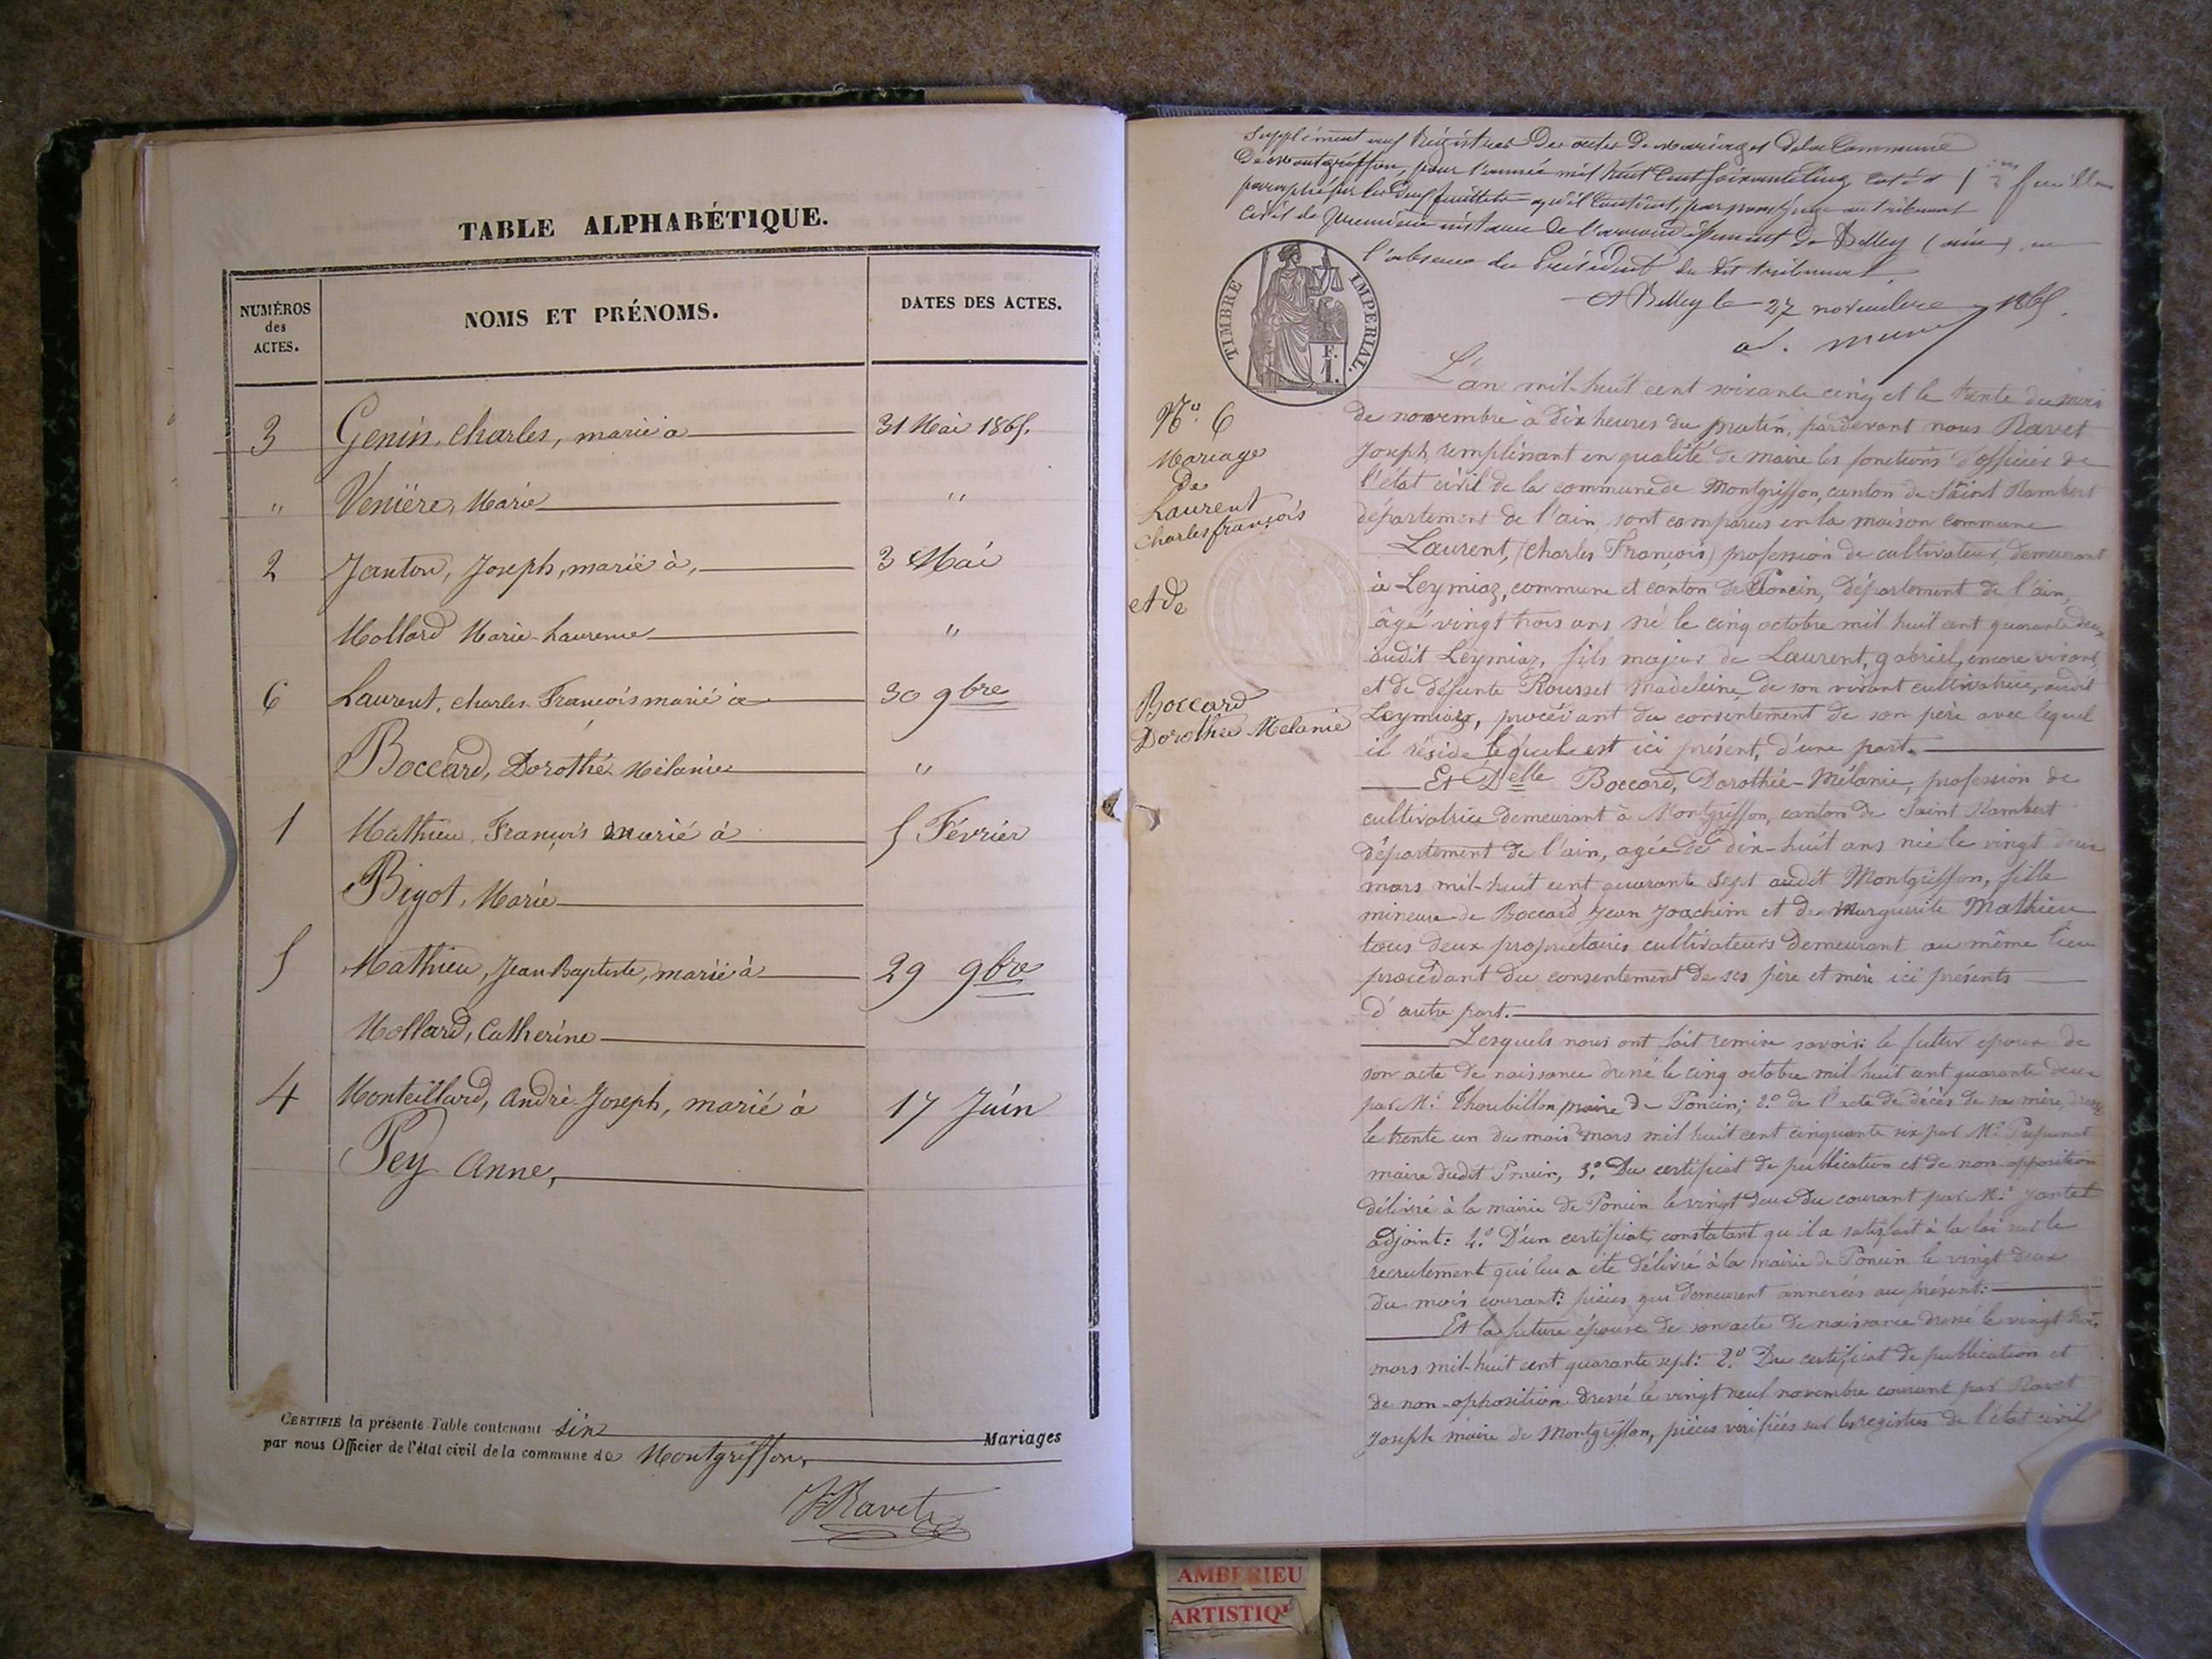 TABLE ALPHABÉTIQUE.
NUMÉROS
des
ACTES.
NOMS ET PRÉNOMS.
DATES DES ACTES.
3 Genin, Charles, marié a 31 Mai 1865.
" Venière, Marie "
2 Janton, Joseph, marié à, 3 Mai
Mollard Marie-Laurence "
6 Laurent, Charles François marié a 30 9bre
Boccard, Dorothé Mélanie "
1 Mathieu, François marié à 5 Février
Bigot, Marie
5 Mathieu, Jean-Baptiste, marié à 29 9bre
Mollard, Catherine
4 Monteillard, André Joseph, marié à 17 Juin
Pey Anne,
CERTIFIÉ la présente Table contenant six Mariages
par nous Officier de l'état civil de la commune de Montgriffon,
J Ravet
Supplément aux Régistres des actes de mariages de la Commune
de Montgriffon, pour l'année mil huit cent soixante cinq, coté et 1er feuillet
paraphé sur les deux feuillets qu'il contient, par nous, juge au tribunal
civil de première instance de l'arrondissement de Belley (ain), en
l'absence du Président du dit tribunal.
A Belley le 27 novembre 1865.
TIMBRE IMPÉRIAL.
F.
1.
No. 6
Mariage
de
Laurent
Charles françois
et de
Boccard
Dorothée Mélanie
L'an mil-huit cent soixante cinq et le trente du mois
de novembre à dix heures du matin, pardevant nous Ravet
Joseph, remplissant en qualité de maire les fonctions d'officier de
l'état civil de la commune de Montgriffon, canton de Saint Rambert
département de l'ain, sont comparus en la maison commune
Laurent, (Charles François) profession de cultivateur, demeurant
à Leymiaz, commune et canton de Poncin, département de l'ain,
âgé vingt trois ans né le cinq octobre mil huit cent quarante deux
audit Leymiaz, fils majeur de Laurent, gabriel, encore vivant,
et de défunte Rousset Madeleine, de son vivant cultivatrice, audit
Leymiaz, procédant du consentement de son père avec lequel
il réside lequel est ici présent, d'une part.
Et Delle Boccard, Dorothée-Mélanie, profession de
cultivatrice demeurant à Montgriffon, canton de Saint Rambert
département de l'ain, agée de dix-huit ans née le vingt deux
mars mil-huit cent quarante sept audit Montgriffon, fille
mineure de Boccard Jean Joachim et de Marguerite Mathieu
tous deux propriétaires cultivateurs demeurant au même lieu
procédant du consentement de ses père et mère ici présents
d'autre part.
Lesquels nous ont fait remise savoir: le futur epoux de
son acte de naissance dressé le cinq octobre mil huit cent quarante deux
par Mr Thoubillon maire de Poncin; 2.o de l'acte de décès de sa mère, dressé
le trente un du mois de mars mil huit cent cinquante six par Mr
maire dudit Poncin, 3.o Du certificat de publication et de non-opposition
délivré à la mairie de Poncin le vingt deux du courant par Mr Jantet
adjoint: 4.o D'un certificat, constatant qu'il a satisfait à la loi sur le
recrutement qui lui a été délivré à la mairie de Poncin le vingt deux
du mois courant: pièces qui demeurent annexées au présent:
Et la future épouse de son acte de naissance dressé le vingt trois
mars mil-huit cent quarante sept: 2.o Du certificat de publication et
de non-opposition dressé le vingt neuf novembre courant par Ravet
Joseph maire de Montgriffon, pièces vérifiées sur les registres de l'état civil
AMBERIEU
ARTISTIQ